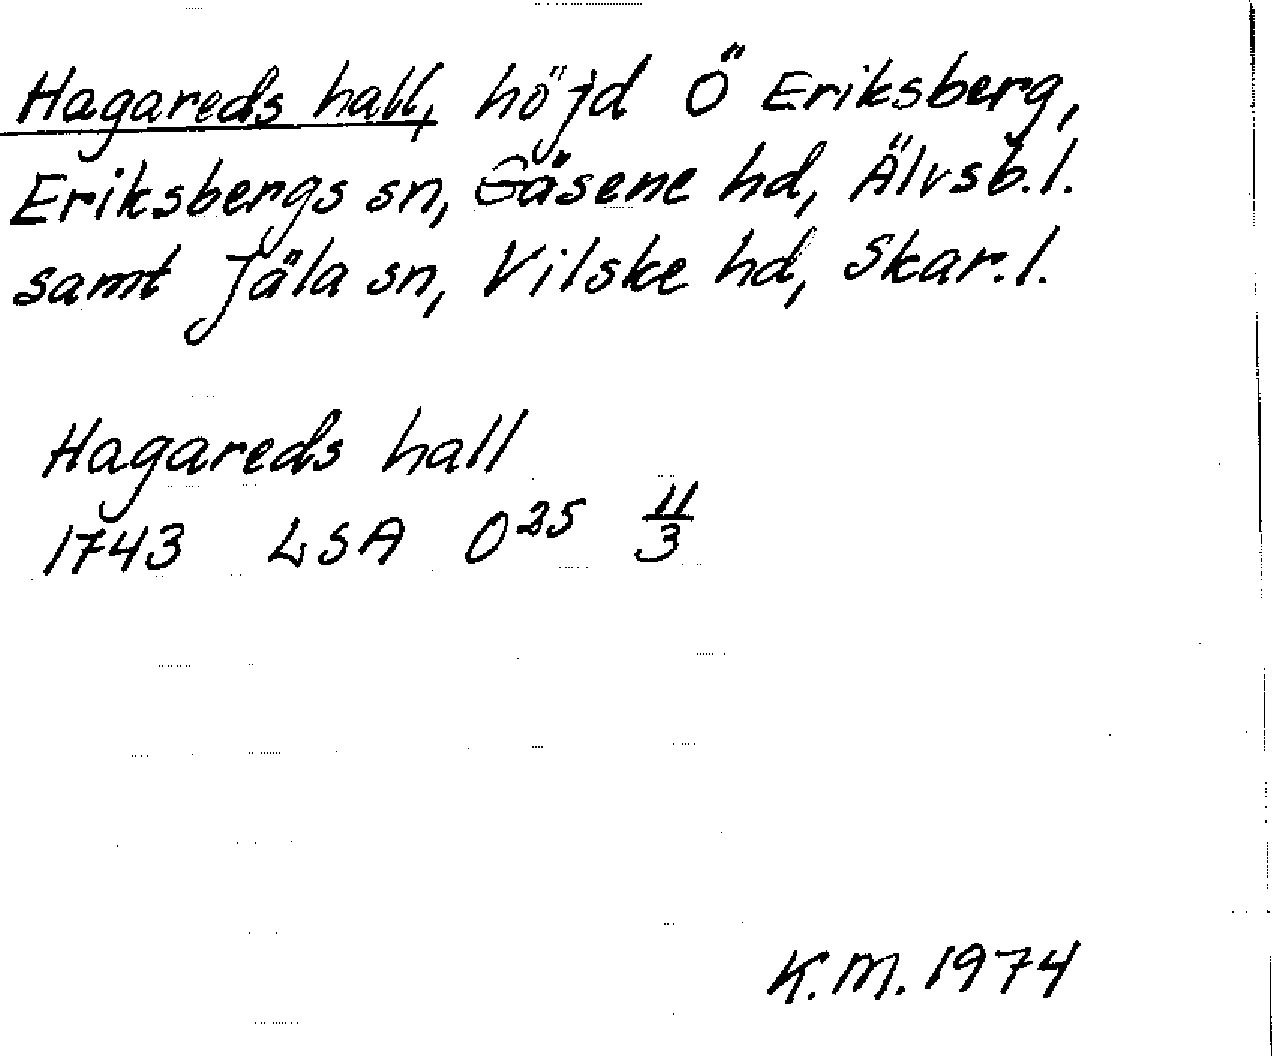 Hagareds hall, höjd Ö Eriksberg,
Eriksbergs sn, Gäsene hd, Älvsb.l.
samt Jäla sn, Vilske hd, Skar.l.
Hagareds hall
1743 LSA O²⁵ 11/3
K.M. 1974